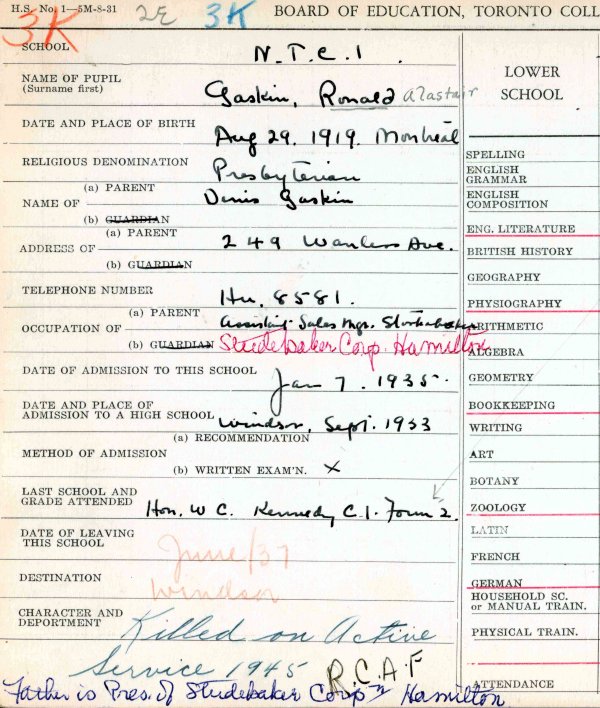 H.S. No. 1—5M-8-31 2E 3K BOARD OF EDUCATION, TORONTO COLL
3K
SCHOOL N.T.C.I.
NAME OF PUPIL (Surname first) Gaskin, Ronald Alastair
DATE AND PLACE OF BIRTH Aug 29. 1919. Montreal
RELIGIOUS DENOMINATION Presbyterian
NAME OF (a) PARENT Denis Gaskin
(b) GUARDIAN
ADDRESS OF (a) PARENT 249 Wanless Ave.
(b) GUARDIAN
TELEPHONE NUMBER Hu. 8581.
OCCUPATION OF (a) PARENT Assistant Sales Mgr. Studebaker
(b) GUARDIAN Studebaker Corp. Hamilton
DATE OF ADMISSION TO THIS SCHOOL Jan 7. 1935.
DATE AND PLACE OF ADMISSION TO A HIGH SCHOOL Windsor, Sept. 1933
METHOD OF ADMISSION (a) RECOMMENDATION
(b) WRITTEN EXAM'N. X
LAST SCHOOL AND GRADE ATTENDED Hon. W C. Kennedy C.I. Form 2.
DATE OF LEAVING THIS SCHOOL June/37
DESTINATION Windsor
CHARACTER AND DEPORTMENT Killed on Active
Service 1945 R.C.A.F
Father is Pres. of Studebaker Corp'n Hamilton
LOWER
SCHOOL
SPELLING
ENGLISH
GRAMMAR
ENGLISH
COMPOSITION
ENG. LITERATURE
BRITISH HISTORY
GEOGRAPHY
PHYSIOGRAPHY
ARITHMETIC
ALGEBRA
GEOMETRY
BOOKKEEPING
WRITING
ART
BOTANY
ZOOLOGY
LATIN
FRENCH
GERMAN
HOUSEHOLD SC.
or MANUAL TRAIN.
PHYSICAL TRAIN.
ATTENDANCE